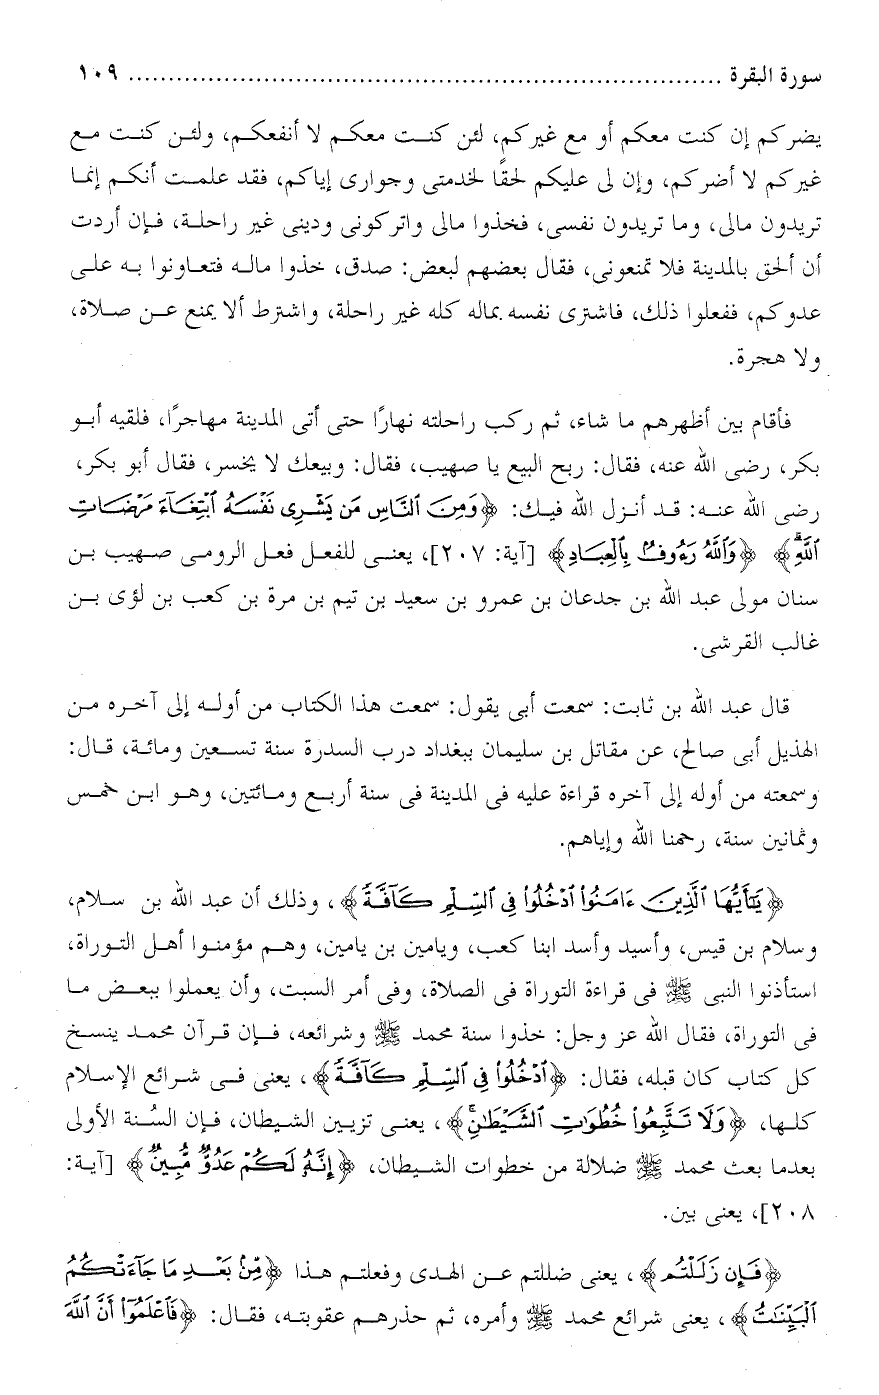 سورة البقرة ........................................................................... ١٠٩
يضركم إن كنت معكم أو مع غيركم، لئن كنت معكم لا أنفعكم، ولئن كنت مع
غيركم لا أضركم، وإن لى عليكم لحقًا لخدمتى وجوارى إياكم، فقد علمت أنكم إنما
تريدون مالى، وما تريدون نفسى، فخذوا مالى واتركونى ودينى غير راحلة، فإن أردت
أن ألحق بالمدينة فلا تمنعونى، فقال بعضهم لبعض: صدق، خذوا ماله فتعاونوا به على
عدوكم، ففعلوا ذلك، فاشترى نفسه بماله كله غير راحلة، واشترط ألا يمنع عن صلاة،
ولا هجرة.
فأقام بين أظهرهم ما شاء، ثم ركب راحلته نهارًا حتى أتى المدينة مهاجرًا، فلقيه أبو
بكر، رضى الله عنه، فقال: ربح البيع يا صهيب، فقال: وبيعك لا يخسر، فقال أبو بكر،
رضى الله عنه: قد أنزل الله فيك: ﴿وَمِنَ ٱلنَّاسِ مَن يَشْرِى نَفْسَهُ ٱبْتِغَآءَ مَرْضَاتِ
ٱللَّهِۗ﴾ ﴿وَٱللَّهُ رَءُوفٌۢ بِٱلْعِبَادِ﴾ [آية: ٢٠٧]، يعنى للفعل فعل الرومى صهيب بن
سنان مولى عبد الله بن جدعان بن عمرو بن سعيد بن تيم بن مرة بن كعب بن لؤى بن
غالب القرشى.
قال عبد الله بن ثابت: سمعت أبى يقول: سمعت هذا الكتاب من أوله إلى آخره من
الهذيل أبى صالح، عن مقاتل بن سليمان ببغداد درب السدرة سنة تسعين ومائة، قال:
وسمعته من أوله إلى آخره قراءة عليه فى المدينة فى سنة أربع ومائتين، وهو ابن خمس
وثمانين سنة، رحمنا الله وإياهم.
﴿يَٰٓأَيُّهَا ٱلَّذِينَ ءَامَنُوا۟ ٱدْخُلُوا۟ فِى ٱلسِّلْمِ كَآفَّةً﴾، وذلك أن عبد الله بن سلام،
وسلام بن قيس، وأسيد وأسد ابنا كعب، ويامين بن يامين، وهم مؤمنوا أهل التوراة،
استأذنوا النبى ﷺ فى قراءة التوراة فى الصلاة، وفى أمر السبت، وأن يعملوا ببعض ما
فى التوراة، فقال الله عز وجل: خذوا سنة محمد ﷺ وشرائعه، فإن قرآن محمد ينسخ
كل كتاب كان قبله، فقال: ﴿ٱدْخُلُوا۟ فِى ٱلسِّلْمِ كَآفَّةً﴾، يعنى فى شرائع الإسلام
كلها، ﴿وَلَا تَتَّبِعُوا۟ خُطُوَٰتِ ٱلشَّيْطَٰنِۚ﴾، يعنى تزيين الشيطان، فإن السُنة الأولى
بعدما بعث محمد ﷺ ضلالة من خطوات الشيطان، ﴿إِنَّهُۥ لَكُمْ عَدُوٌّ مُّبِينٌ﴾ [آية:
٢٠٨]، يعنى بين.
﴿فَإِن زَلَلْتُم﴾، يعنى ضللتم عن الهدى وفعلتم هذا ﴿مِّنۢ بَعْدِ مَا جَآءَتْكُمُ
ٱلْبَيِّنَٰتُ﴾، يعنى شرائع محمد ﷺ وأمره، ثم حذرهم عقوبته، فقال: ﴿فَٱعْلَمُوٓا۟ أَنَّ ٱللَّهَ